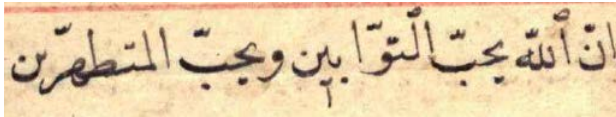 انّ ٱللّه يحبّ ٱلتوّابين ويحبّ المتطهرّين